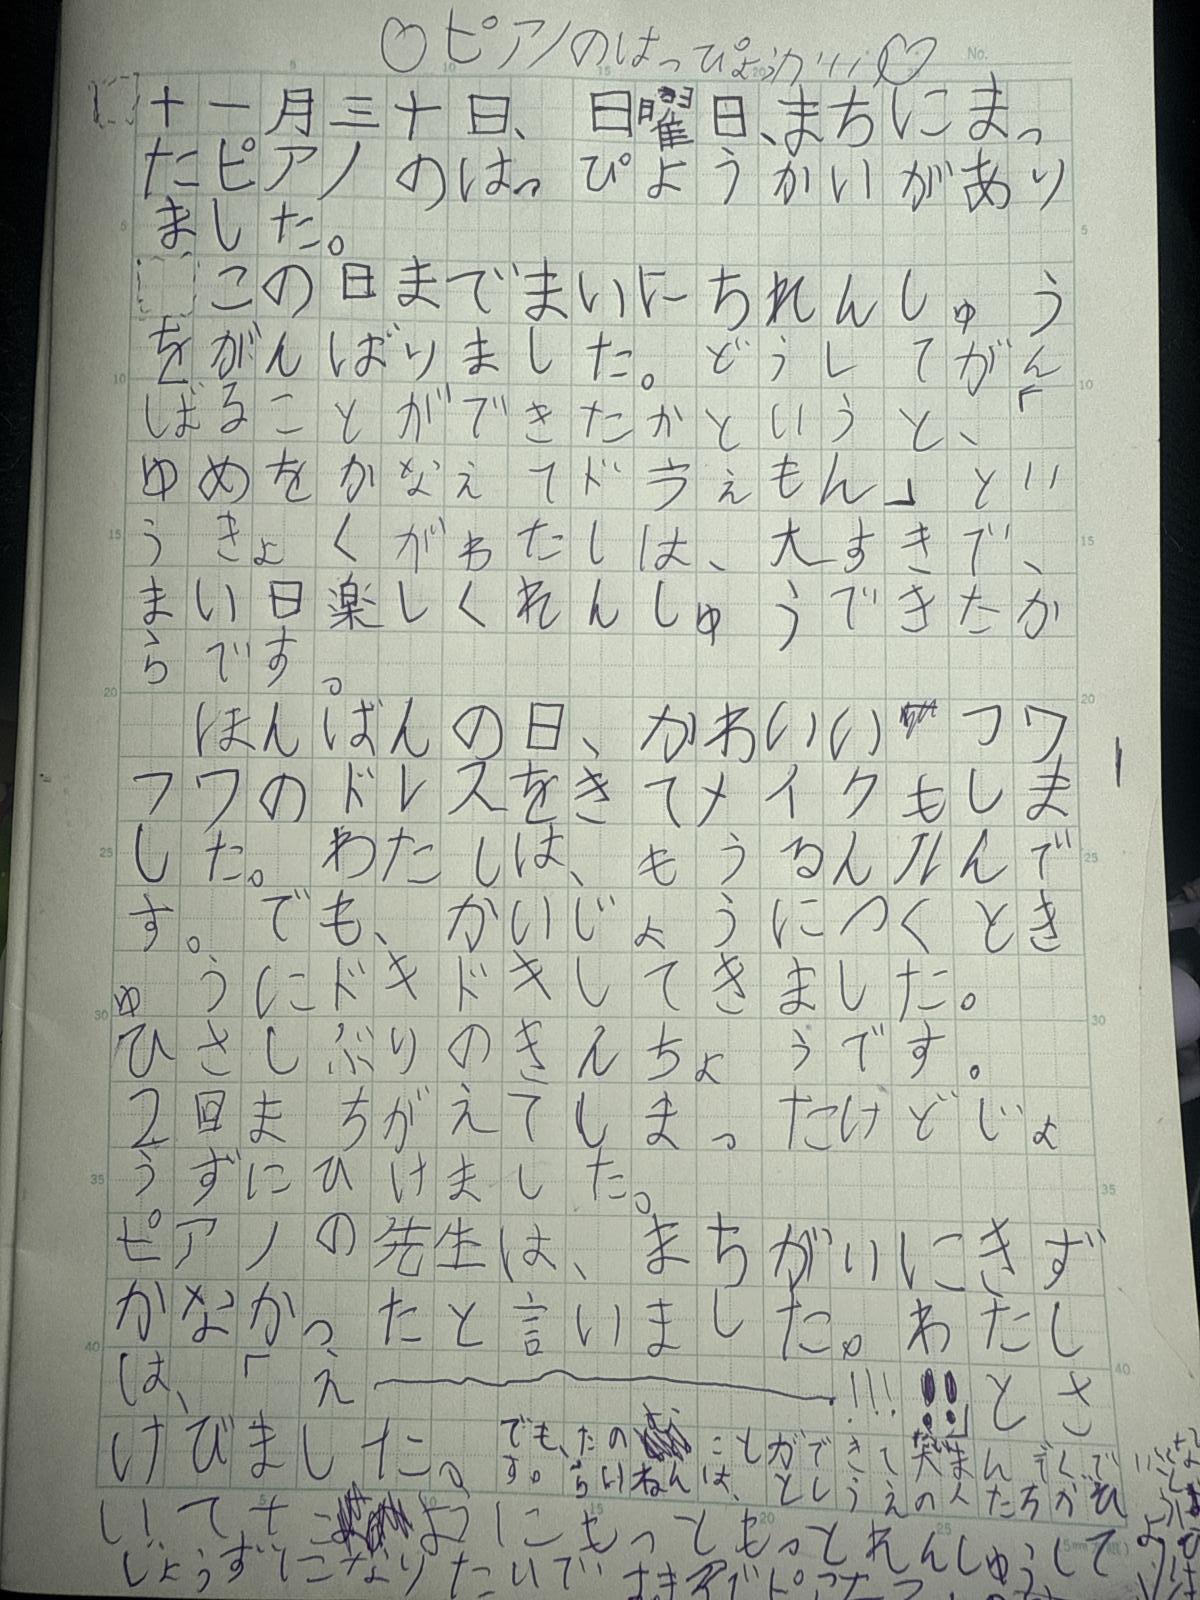 ♡ピアノのはっぴょうかい♡
No.
十一月三十日、日曜日、まちにまっ
たピアノのはっぴょうかいがあり
ました。
この日までまいにちれんしゅう
をがんばりました。どうしてがん
ばることができたかというと、「
ゆめをかなえてドラえもん」とい
うきょくがわたしは、大すきで、
まい日楽しくれんしゅうできたか
らです。
ほんばんの日、かわいいフワ
フワのドレスをきてメイクもしま
した。わたしは、もうるんルんで
す。でも、かいじょうにつくとき
ゅうにドキドキしてきました。
ひさしぶりのきんちょうです。
2回まちがえてしまったけどじょ
うずにひけました。
ピアノの先生は、まちがいにきず
かなかったと言いました。わたし
は、「え〜!!!!!」とさ
けびました。
でも、たの
ことができて
す。らいねんは、としうえの人たちがひ
ようにもっともっとれんしゅうして
じょうずになりたいで